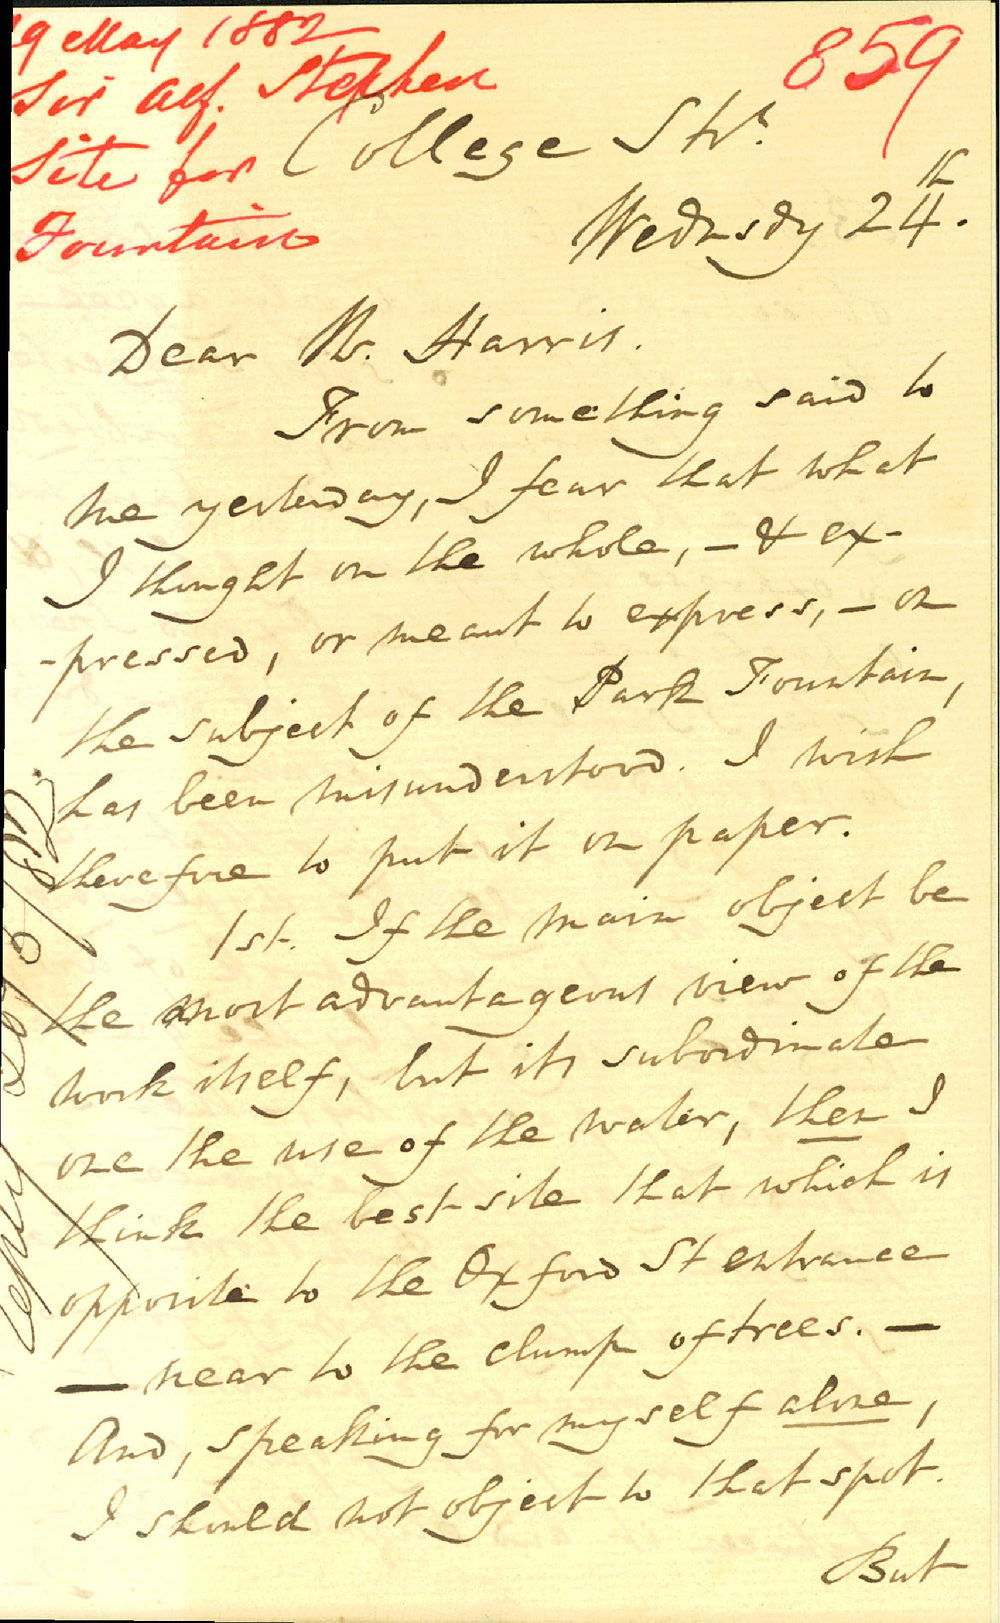 9 May 1882
Sir Alf. Stephen
Site for
Fountain
859
College Str.
Wednsdy 24th.
Dear Mr. Harris.
From something said to
me yesterday, I fear that what
I thought on the whole, – & ex-
-pressed, or meant to express, – on
the subject of the Park Fountain,
has been misunderstood. I wish
therefore to put it on paper.
1st. If the main object be
the most advantageous view of the
work itself, but its subordinate
one the use of the water, then I
think the best site that which is
opposite to the Oxford St entrance
— near to the clump of trees. —
And, speaking for myself alone,
I should not object to that spot.
But